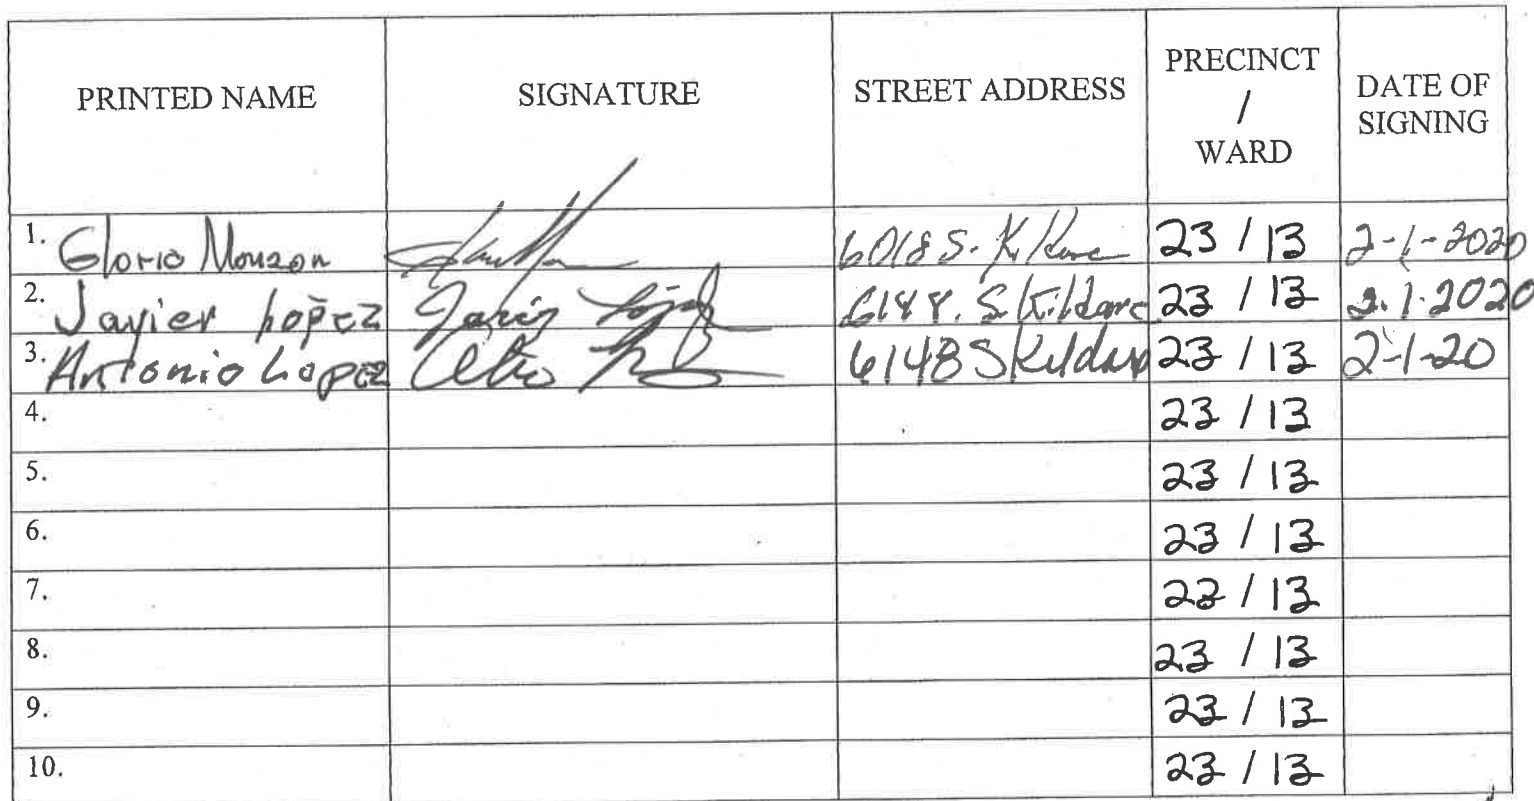 PRINTED NAME SIGNATURE STREET ADDRESS PRECINCT / WARD DATE OF SIGNING
1. Gloria Monzon 6018 S. Kildare 23 / 13 2-1-2020
2. Javier Lopez Javier Lopez S. Kildare 23 / 13 2.1.2020
3. Antonio Lopez 6148 S Kildare 23 / 13 2-1-20
4. 23 / 13
5. 23 / 13
6. 23 / 13
7. 23 / 13
8. 23 / 13
9. 23 / 13
10. 23 / 13